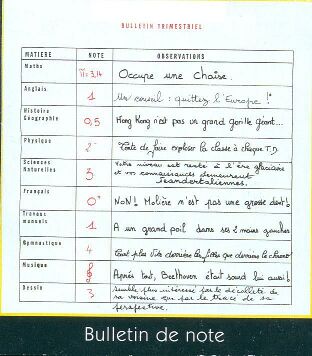 BULLETIN TRIMESTRIEL
MATIÈRE NOTE OBSERVATIONS
Maths π=3,14 Occupe une chaise.
Anglais 1 Un conseil : quittez l'Europe !
Histoire
Géographie 0,5 Hong Kong n'est pas un grand gorille géant...
Physique 2 Tente de faire exploser la classe à chaque T.D.
Sciences
Naturelles 3 Votre niveau est resté à l'ère glaciaire
et vos connaissances demeurent
neandertaliennes.
Français 0+ NON! Molière n'est pas une grosse dent!
Travaux
manuels 1 A un grand poil dans ses 2 mains gauches
Gymnastique 4 Court plus vite derrière les filles que derrière le chrono
Musique Après tout, Beethoven était sourd lui aussi!
Dessin 3 Semble plus intéressé par le décolleté de
sa voisine que par le tracé de sa
perspective.
Bulletin de note